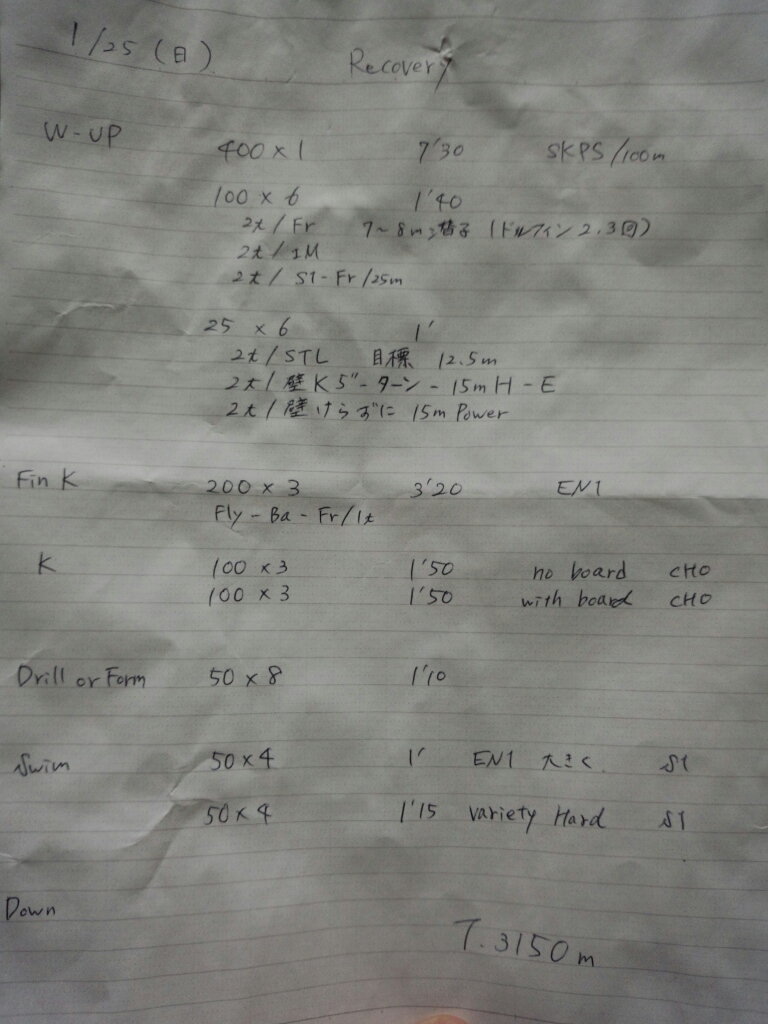 1/25 (日) Recovery
W-UP 400 × 1 7'30 SKPS/100m
100 × 6 1'40
2t/Fr 7~8m 潜子 (ドルフィン2.3回)
2t/IM
2t/ S1-Fr/25m
25 × 6 1'
2t/STL 目標 12.5m
2t/壁K5"-ターン-15mH-E
2t/壁けらずに 15m Power
Fin K 200 × 3 3'20 EN1
Fly-Ba-Fr/1t
K 100 × 3 1'50 no board CHO
100 × 3 1'50 with board CHO
Drill or Form 50 × 8 1'10
Swim 50 × 4 1' EN1 大きく S1
50 × 4 1'15 variety Hard S1
Down
T.3150m